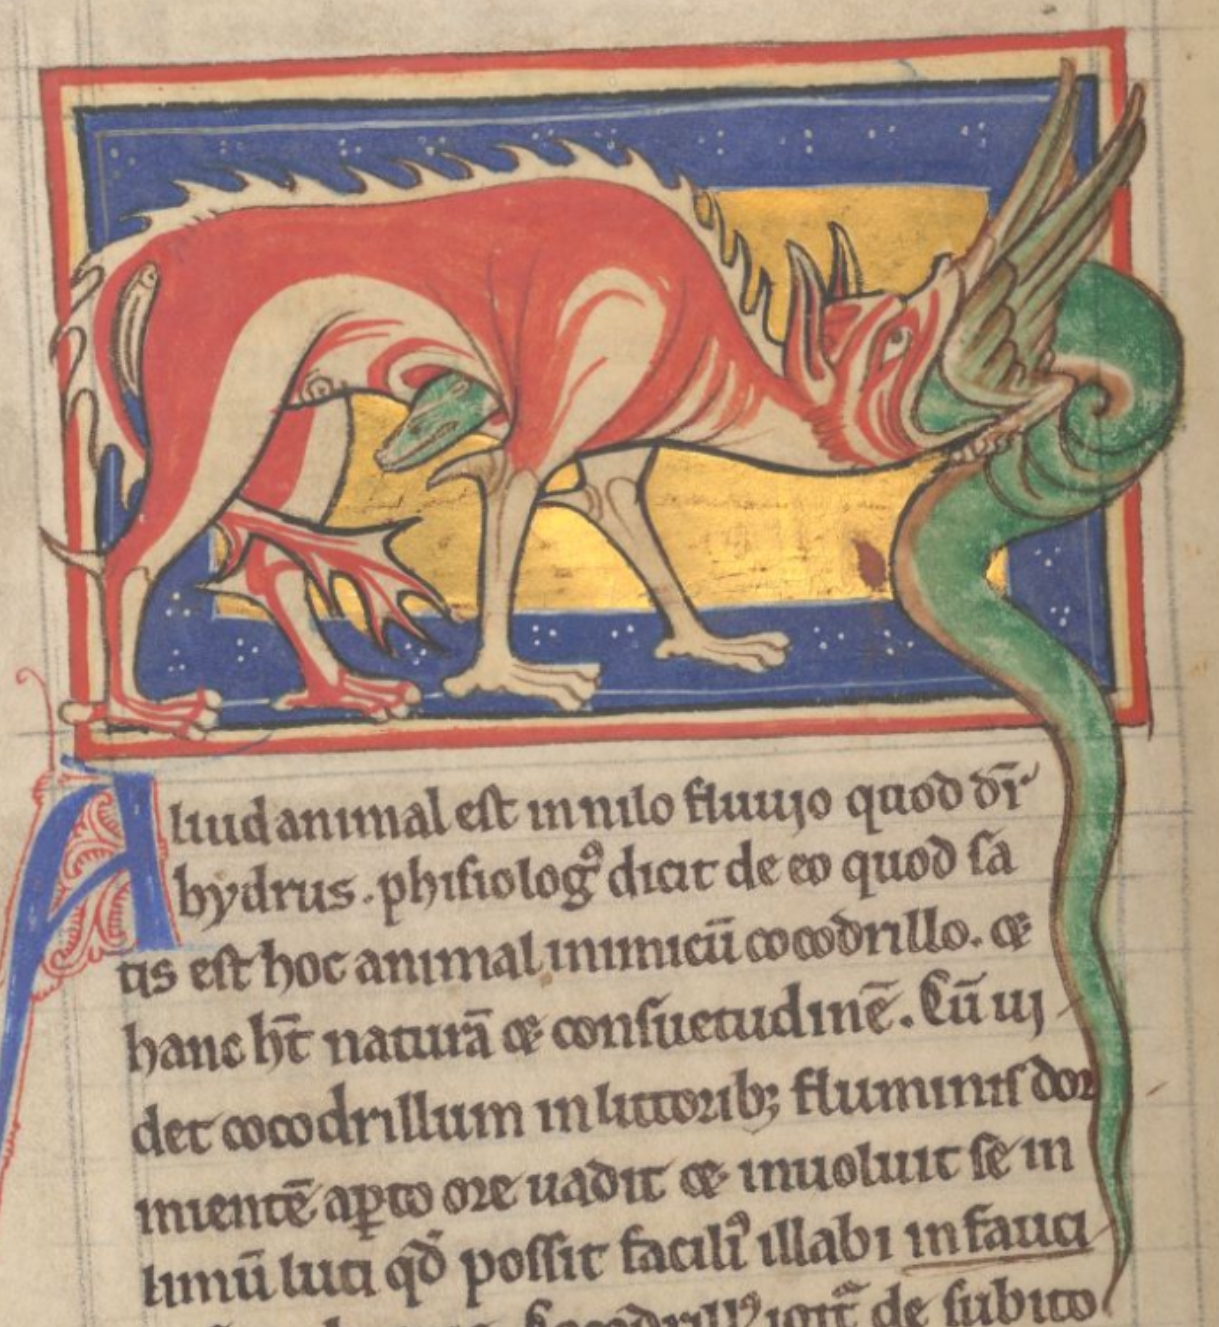 Aliud animal est in nilo fluuio quod dr̄
hydrus. phisiologꝰ dicit de eo quod sa
tis est hoc animal inimicū cocodrillo. et
hanc ht̄ naturā et consuetudinē. Cū ui
det cocodrillum in littorib; fluminis dor
mientē aꝑto ore uadit et inuoluit se in
limū luti qd̄ possit faciliꝰ illabi in fauci
de subito